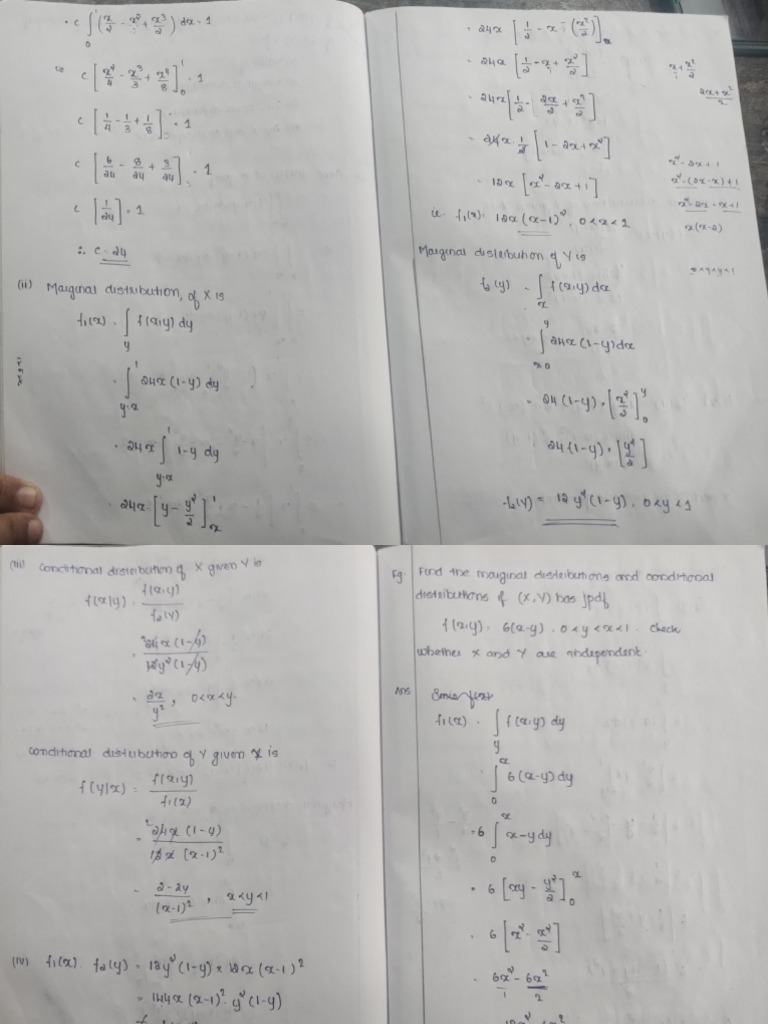 c ∫₀¹ (x/2 - x² + x³/2) dx = 1
c [x²/4 - x³/3 + x⁴/8]₀¹ = 1
c [1/4 - 1/3 + 1/8] = 1
c [6/24 - 8/24 + 3/24] = 1
c [1/24] = 1
∴ c = 24
(ii) Marginal distribution, of X is
f₁(x) = ∫_y f(x,y) dy
= ∫_{y=x}^1 24x (1-y) dy
= 24x ∫_{y=x}^1 1-y dy
= 24x [y - y²/2]_x^1
= 24x [1/2 - x - (x²/2)]
= 24x [1/2 - x + x²/2]
x + x²/2
= 24x [1/2 - 2x/2 + x²/2]
2x + x²/2
= 24x · 1/2 [1 - 2x + x²]
= 12x [x² - 2x + 1]
x² - 2x + 1
x² - (2x - x) + 1
x² - 2x - x + 1
x(x-2)
ie. f₁(x) = 12x (x-1)², 0<x<1
Marginal distribution of Y is
f₂(y) = ∫_x f(x,y) dx
= ∫_{x=0}^y 24x (1-y) dx
= 24 (1-y) · [x²/2]₀^y
= 24 (1-y) · [y²/2]
f₂(y) = 12 y² (1-y), 0<y<1
(iii) Conditional distribution of X given Y is
f(x|y) = f(x,y)/f₂(y)
= 24x (1-y)/12y² (1-y)
= 2x/y², 0<x<y.
Conditional distribution of Y given X is
f(y|x) = f(x,y)/f₁(x)
= 24x (1-y)/12x (x-1)²
= 2-2y/(x-1)², x<y<1
(iv) f₁(x). f₂(y) = 12y² (1-y) × 12x (x-1)²
= 144x (x-1)² y² (1-y)
Eg. Find the marginal distributions and conditional
distributions of (X,Y) has jpdf
f(x,y) = 6(x-y), 0<y<x<1. Check
whether X and Y are independent.
Ans
f₁(x) = ∫_y f(x,y) dy
= ∫₀^x 6(x-y) dy
= 6 ∫₀^x x-y dy
= 6 [xy - y²/2]₀^x
= 6 [x² - x²/2]
= 6x²/1 - 6x²/2